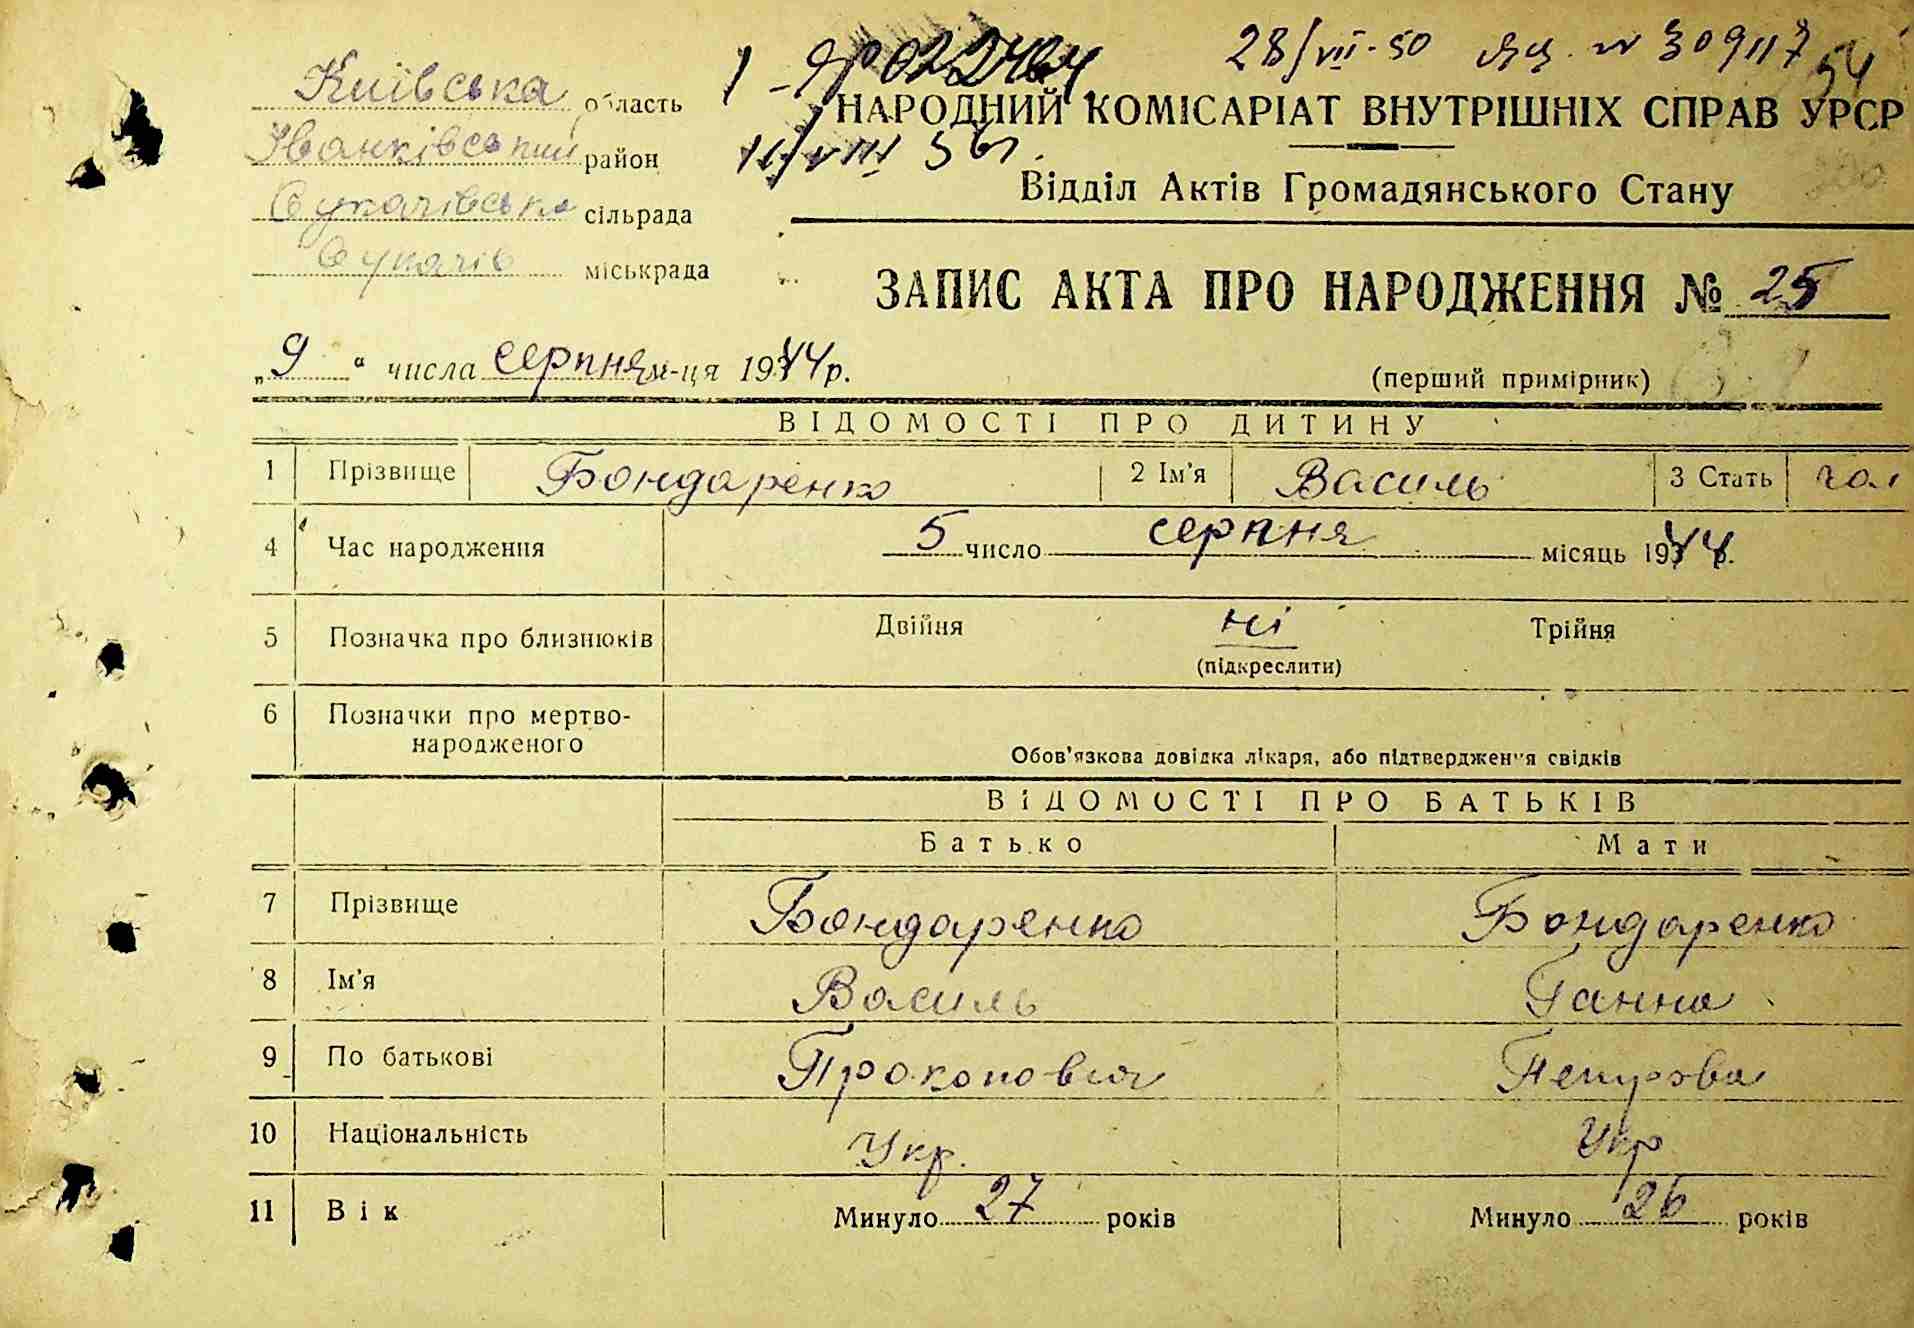 Київська область
Іванківський район
Сукачівська сільрада
Сукачів міськрада
28/VII-50 № 309117
54
НАРОДНИЙ КОМІСАРІАТ ВНУТРІШНІХ СПРАВ УРСР
Відділ Актів Громадянського Стану
ЗАПИС АКТА ПРО НАРОДЖЕННЯ № 25
„9“ числа серпня м-ця 1944р.
(перший примірник)
ВІДОМОСТІ ПРО ДИТИНУ
1 Прізвище Бондаренко 2 Ім'я Василь 3 Стать чол
4 Час народження 5 число серпня місяць 1944р.
5 Позначка про близнюків Двійня ні Трійня
(підкреслити)
6 Позначки про мертво-
народженого
Обов'язкова довідка лікаря, або підтвердження свідків
ВІДОМОСТІ ПРО БАТЬКІВ
Батько Мати
7 Прізвище Бондаренко Бондаренко
8 Ім'я Василь Ганна
9 По батькові Прокопович Петровна
10 Національність Укр. Укр
11 Вік Минуло 27 років Минуло 26 років